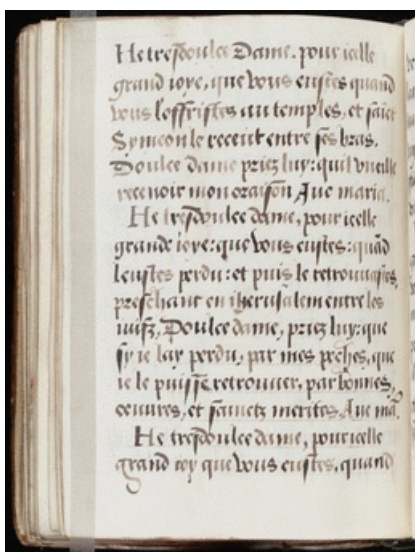 He tresdoulce Dame, pour icelle
grand ioye, que vous eustes quand
vous l'offristes au temples, et sainct
Symeon le receut entre ses bras.
Doulce dame priez luy: quil vueille
recenoir mon oraison Aue maria.
He tresdoulce dame, pour icelle
grande ioye: que vous eustes: quãd
leustes perdu: et puis le retrouuastes,
preschant en iherusalem entre les
uifz, Doulce dame, priez luy: que
sy ie lay perdu, par mes peches, que
ie le puisse retrouuer, par bonnes,
oeuures, et sainctz merites, Aue mã.
He tresdoulce dame, pour icelle
grand ioy que vous eustes, quand